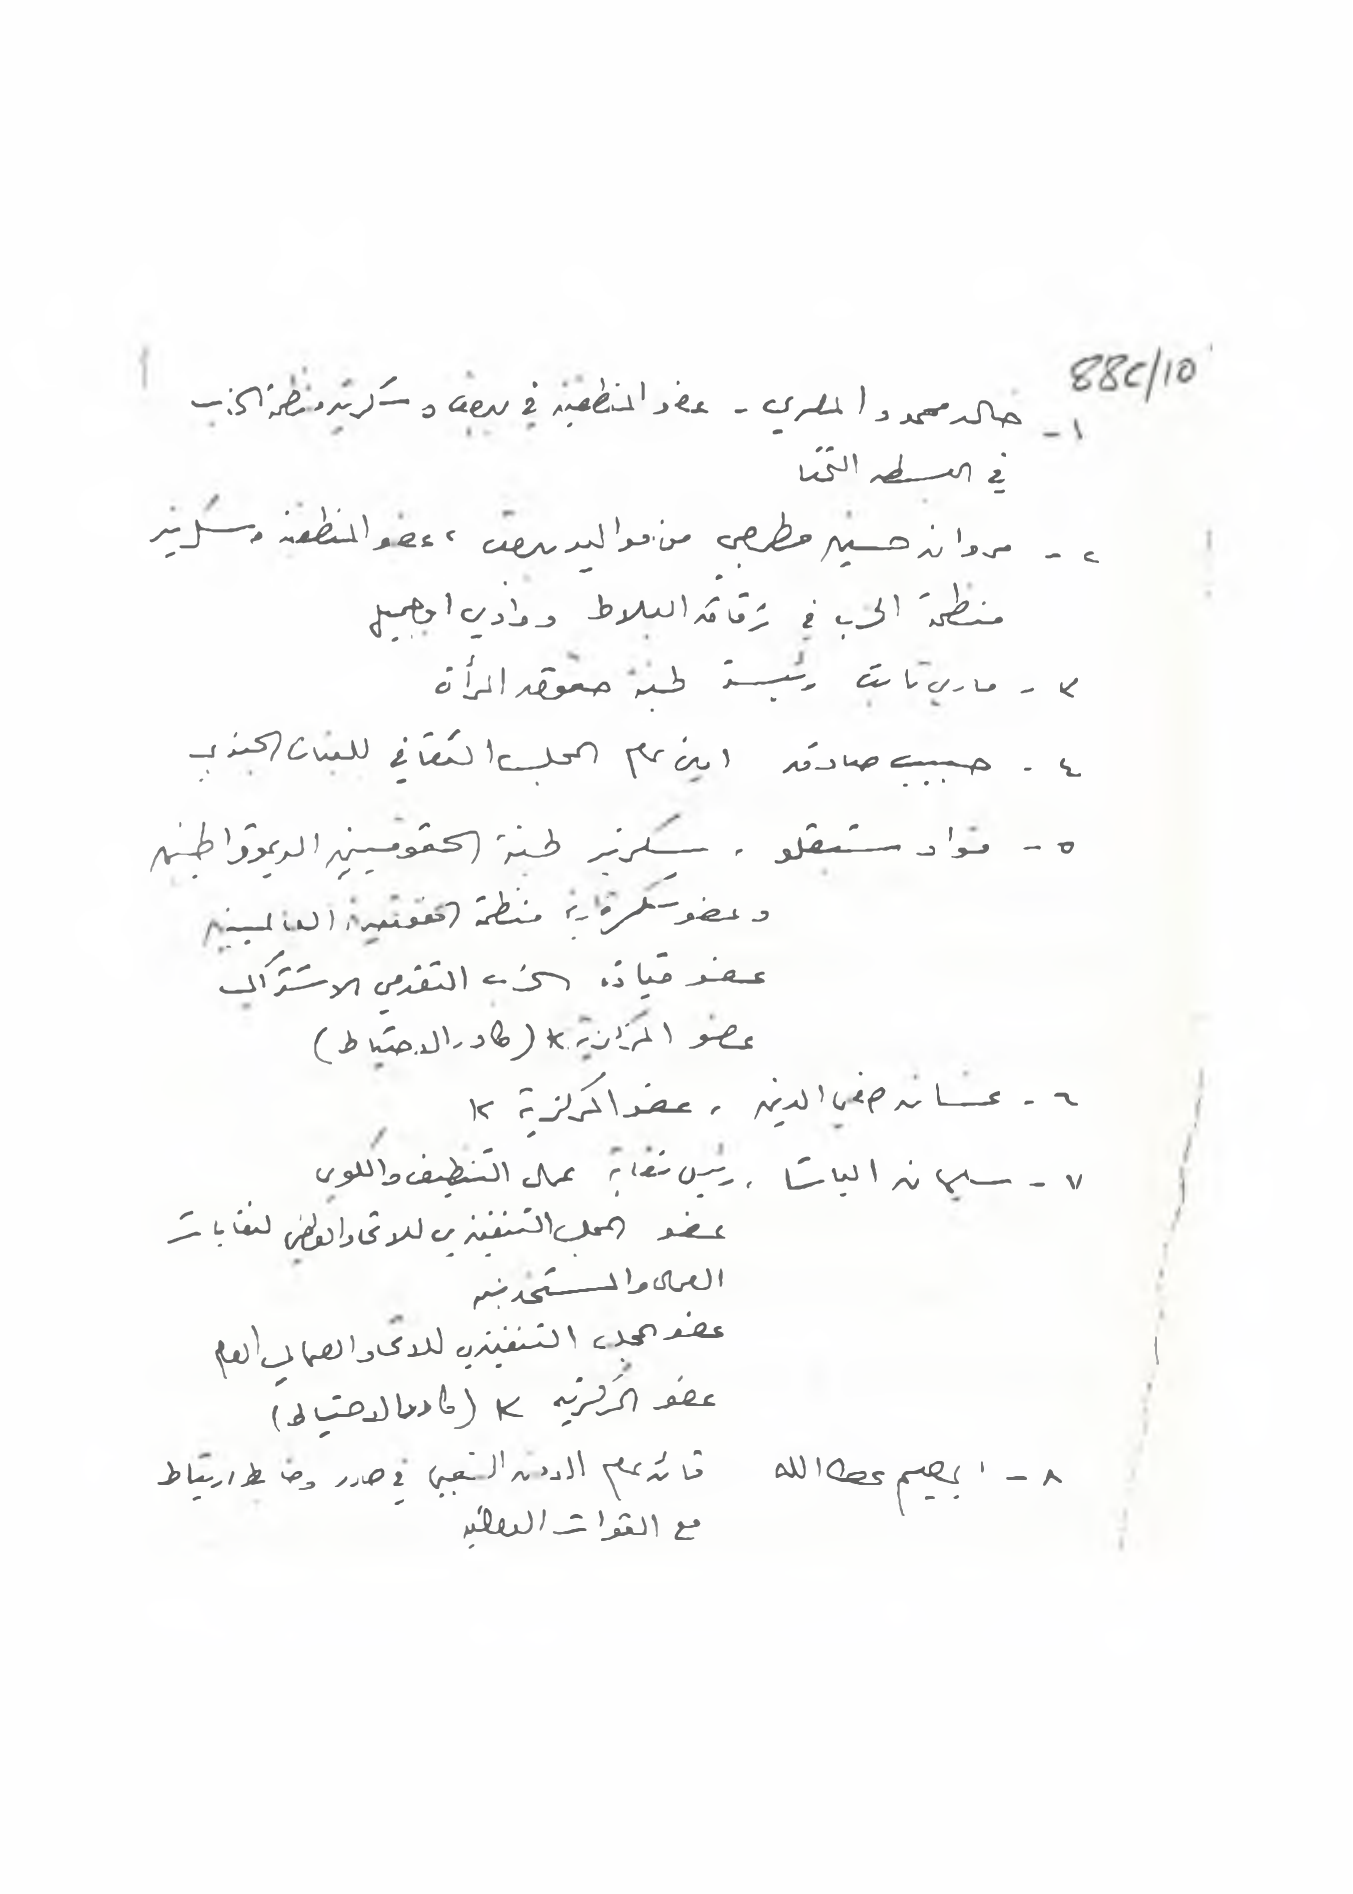 88C/10
١ - خالد محمود المصري - عضو المنطقية في بيروت و سكرتير منظمة الحزب
في البسطة التحتا
٢ - مروان حسين مطرجي من مواليد بيروت ، عضو المنطقية وسكرتير
منظمة الحزب في زقاق البلاط ووادي ابو جميل
٣ - ماري تابت رئيسة لجنة حقوق المرأة
٤ - حبيب صادق امين عام المجلس الثقافي للبنان الجنوبي
٥ - فؤاد شبقلو ، سكرتير لجنة الحقوقيين الديموقراطيين
وعضو سكرتارية منظمة الحقوقيين العالميين
عضو قيادة الحزب التقدمي الاشتراكي
عضو المركزية K (كادر الاحتياط)
٦ - غسان صفي الدين ، عضو المركزية K
٧ - سليمان الباشا ، رئيس نقابة عمال التنظيف والكوي
عضو المجلس التنفيذي للاتحاد الوطني لنقابات
العمال والمستخدمين
عضو المجلس التنفيذي للاتحاد العمالي العام
عضو المركزية K (كادر الاحتياط)
٨ - ابرهيم عطاالله قائد عام الامن الشعبي في صور وضابط ارتباط
مع القوات الدولية